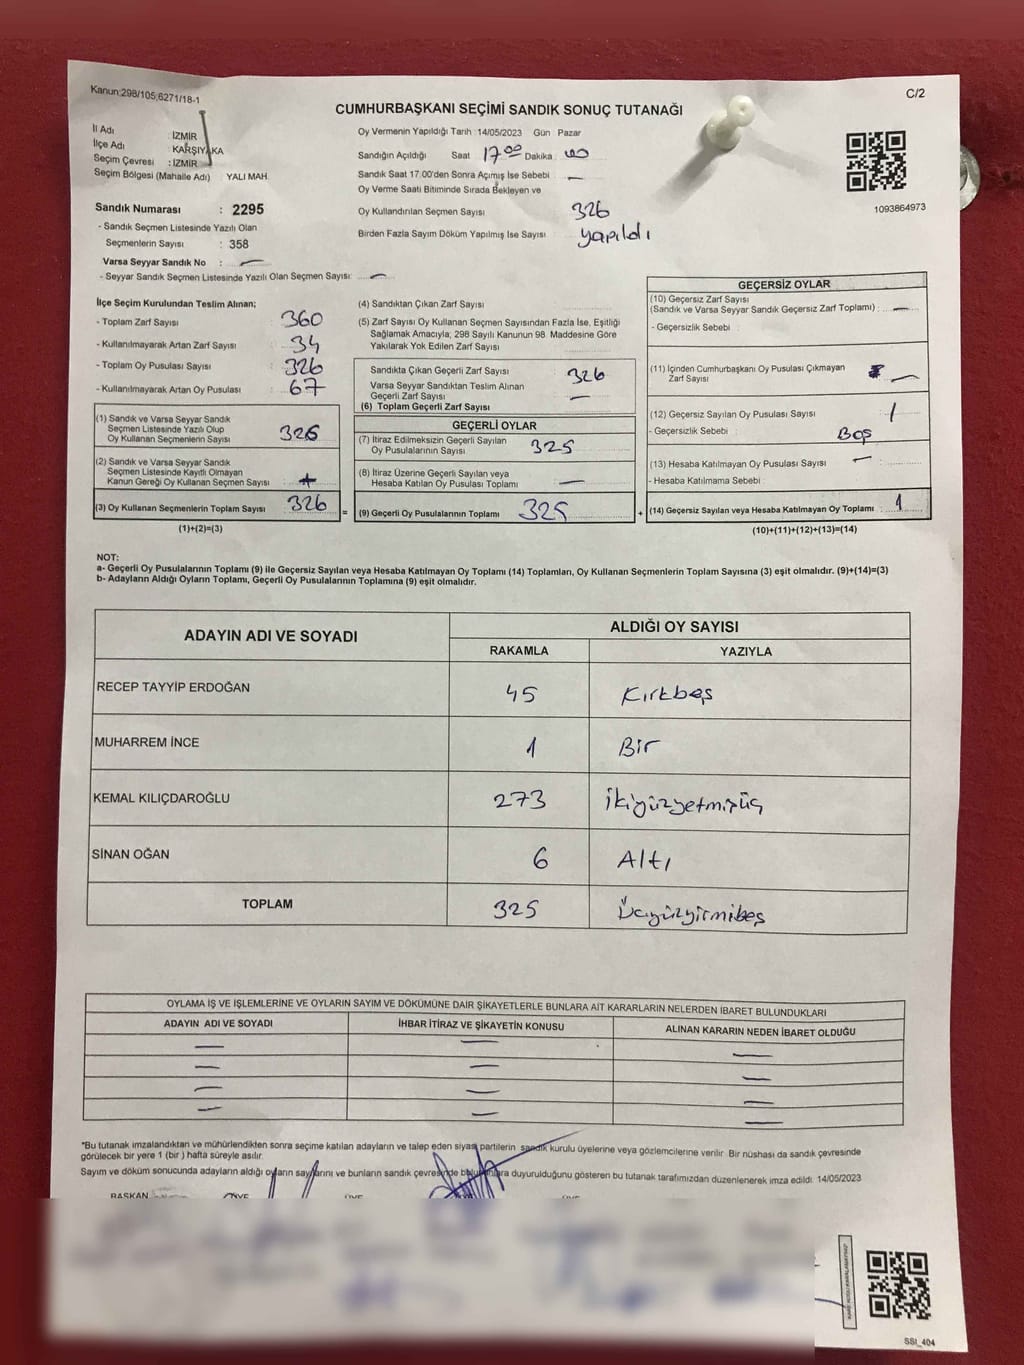 Kanun:298/105;6271/18-1
C/2
CUMHURBAŞKANI SEÇİMİ SANDIK SONUÇ TUTANAĞI
İl Adı : İZMİR
İlçe Adı : KARŞIYAKA
Seçim Çevresi : İZMİR
Seçim Bölgesi (Mahalle Adı) YALI MAH.
Sandık Numarası : 2295
- Sandık Seçmen Listesinde Yazılı Olan
Seçmenlerin Sayısı : 358
Varsa Seyyar Sandık No : —
- Seyyar Sandık Seçmen Listesinde Yazılı Olan Seçmen Sayısı: —
Oy Vermenin Yapıldığı Tarih :14/05/2023 Gün : Pazar
Sandığın Açıldığı Saat 17.00 Dakika : 00
Sandık Saat 17.00'den Sonra Açımış İse Sebebi : —
Oy Verme Saati Bitiminde Sırada Bekleyen ve
Oy Kullandırılan Seçmen Sayısı 326
Birden Fazla Sayım Döküm Yapılmış İse Sayısı yapıldı
1093864973
İlçe Seçim Kurulundan Teslim Alınan;
- Toplam Zarf Sayısı 360
- Kullanılmayarak Artan Zarf Sayısı 34
- Toplam Oy Pusulası Sayısı 326
- Kullanılmayarak Artan Oy Pusulası 67
(1) Sandık ve Varsa Seyyar Sandık
Seçmen Listesinde Yazılı Olup
Oy Kullanan Seçmenlerin Sayısı 326
(2) Sandık ve Varsa Seyyar Sandık
Seçmen Listesinde Kayıtlı Olmayan
Kanun Gereği Oy Kullanan Seçmen Sayısı :
(3) Oy Kullanan Seçmenlerin Toplam Sayısı : 326
(1)+(2)=(3)
(4) Sandıktan Çıkan Zarf Sayısı
(5) Zarf Sayısı Oy Kullanan Seçmen Sayısından Fazla İse, Eşitliği
Sağlamak Amacıyla; 298 Sayılı Kanunun 98. Maddesine Göre
Yakılarak Yok Edilen Zarf Sayısı
Sandıkta Çıkan Geçerli Zarf Sayısı 326
Varsa Seyyar Sandıktan Teslim Alınan
Geçerli Zarf Sayısı —
(6) Toplam Geçerli Zarf Sayısı
GEÇERLİ OYLAR
(7) İtiraz Edilmeksizin Geçerli Sayılan
Oy Pusulalarının Sayısı 325
(8) İtiraz Üzerine Geçerli Sayılan veya
Hesaba Katılan Oy Pusulası Toplamı —
= (9) Geçerli Oy Pusulalarının Toplamı 325
GEÇERSİZ OYLAR
(10) Geçersiz Zarf Sayısı
(Sandık ve Varsa Seyyar Sandık Geçersiz Zarf Toplamı) : —
- Geçersizlik Sebebi :
(11) İçinden Cumhurbaşkanı Oy Pusulası Çıkmayan
Zarf Sayısı —
(12) Geçersiz Sayılan Oy Pusulası Sayısı : 1
- Geçersizlik Sebebi : Boş
(13) Hesaba Katılmayan Oy Pusulası Sayısı : —
- Hesaba Katılmama Sebebi :
+ (14) Geçersiz Sayılan veya Hesaba Katılmayan Oy Toplamı : 1
(10)+(11)+(12)+(13)=(14)
NOT:
a- Geçerli Oy Pusulalarının Toplamı (9) ile Geçersiz Sayılan veya Hesaba Katılmayan Oy Toplamı (14) Toplamları, Oy Kullanan Seçmenlerin Toplam Sayısına (3) eşit olmalıdır. (9)+(14)=(3)
b- Adayların Aldığı Oyların Toplamı, Geçerli Oy Pusulalarının Toplamına (9) eşit olmalıdır.
ADAYIN ADI VE SOYADI
ALDIĞI OY SAYISI
RAKAMLA YAZIYLA
RECEP TAYYİP ERDOĞAN 45 Kırkbeş
MUHARREM İNCE 1 Bir
KEMAL KILIÇDAROĞLU 273 İkiyüzyetmişüç
SİNAN OĞAN 6 Altı
TOPLAM 325 Üçyüzyirmibeş
OYLAMA İŞ VE İŞLEMLERİNE VE OYLARIN SAYIM VE DÖKÜMÜNE DAİR ŞİKAYETLERLE BUNLARA AİT KARARLARIN NELERDEN İBARET BULUNDUKLARI
ADAYIN ADI VE SOYADI İHBAR İTİRAZ VE ŞİKAYETİN KONUSU ALINAN KARARIN NEDEN İBARET OLDUĞU
— — —
— — —
— — —
— — —
*Bu tutanak imzalandıktan ve mühürlendikten sonra seçime katılan adayların ve talep eden siyasi partilerin sandık kurulu üyelerine veya gözlemcilerine verilir. Bir nüshası da sandık çevresinde
görülecek bir yere 1 (bir ) hafta süreyle asılır.
Sayım ve döküm sonucunda adayların aldığı oyların sayılarını ve bunların sandık çevresinde bulunanlara duyurulduğunu gösteren bu tutanak tarafımızdan düzenlenerek imza edildi. 14/05/2023
BAŞKAN ÜYE ÜYE ÜYE
SSI_404